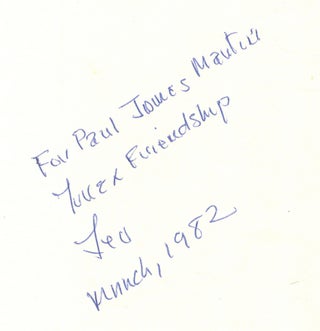 For Paul James Martin
Love & Friendship
Leo
March, 1982